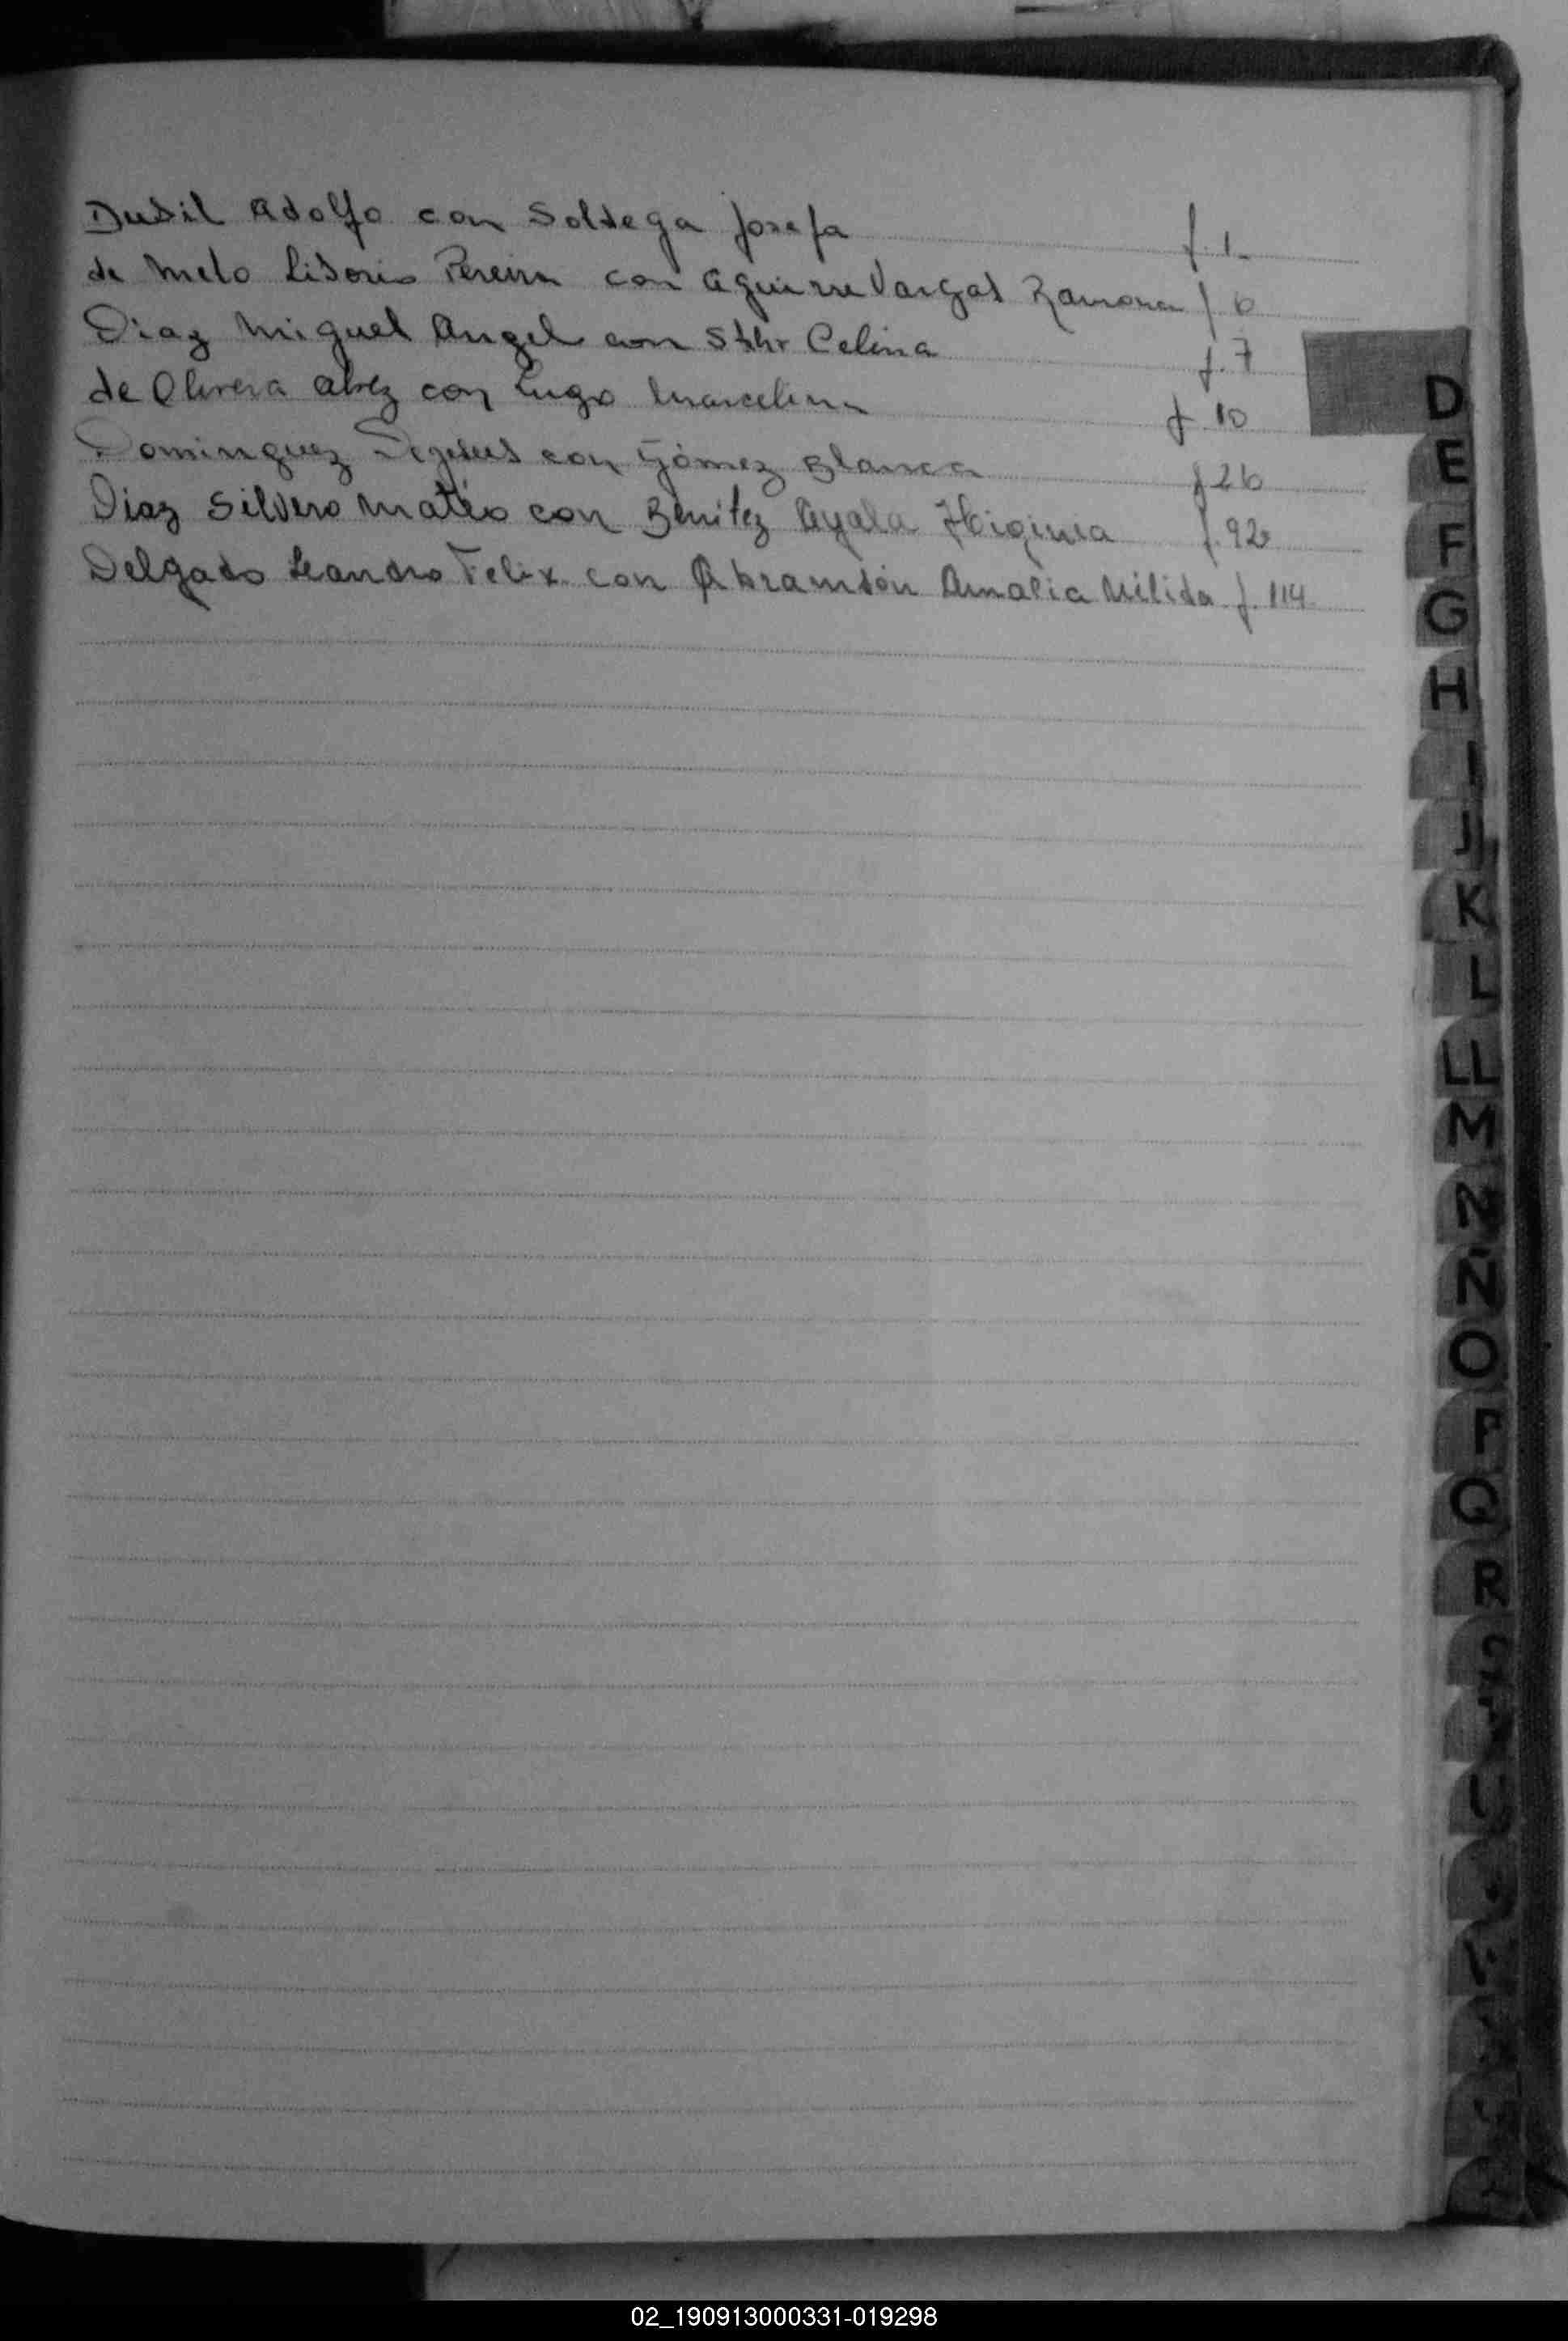 Dusil Adolfo con Soldega Josefa f. 1
de Melo Lisorio Pereira con Aguirre Vargas Ramona f. 6
Diaz Miguel Angel con Sthr Celina f. 7
de Olivera con Lugo Marcelina f. 10
Dominguez con Gómez Blanca f 26
Diaz Silvero Mateo con Benitez Ayala Higinia f. 92
Delgado Leandro Felix con Abramsón Amalia Nélida f. 114
D
E
F
G
H
I
J
K
L
LL
M
N
Ñ
O
P
Q
R
U
02_190913000331-019298